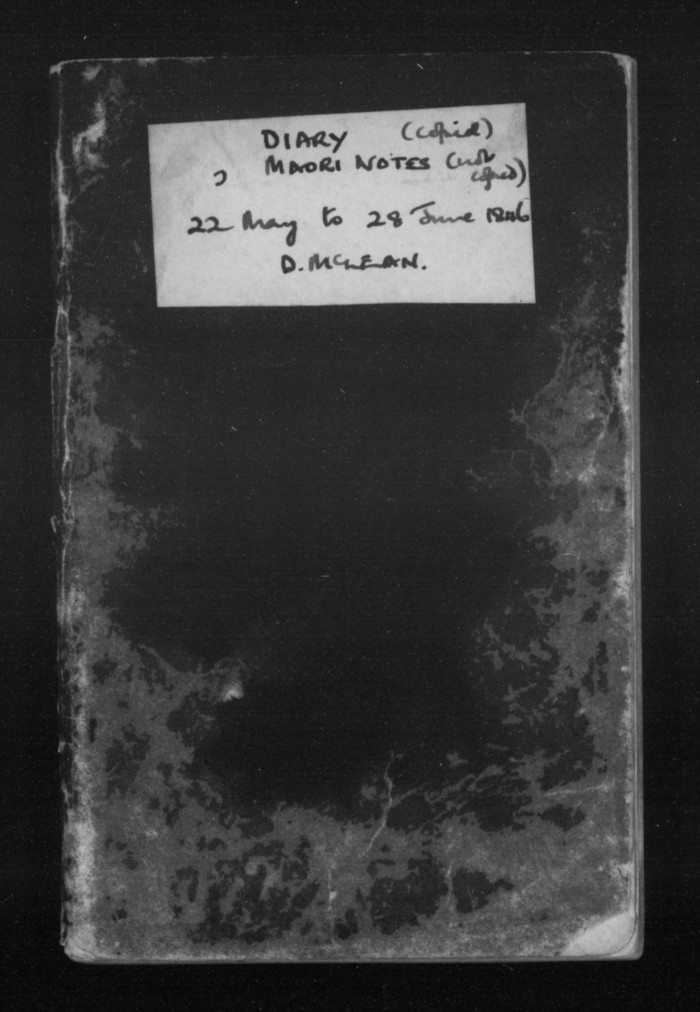 DIARY (copied)
" MAORI NOTES (not
copied)
22 May to 28 June 1846
D. McLEAN.